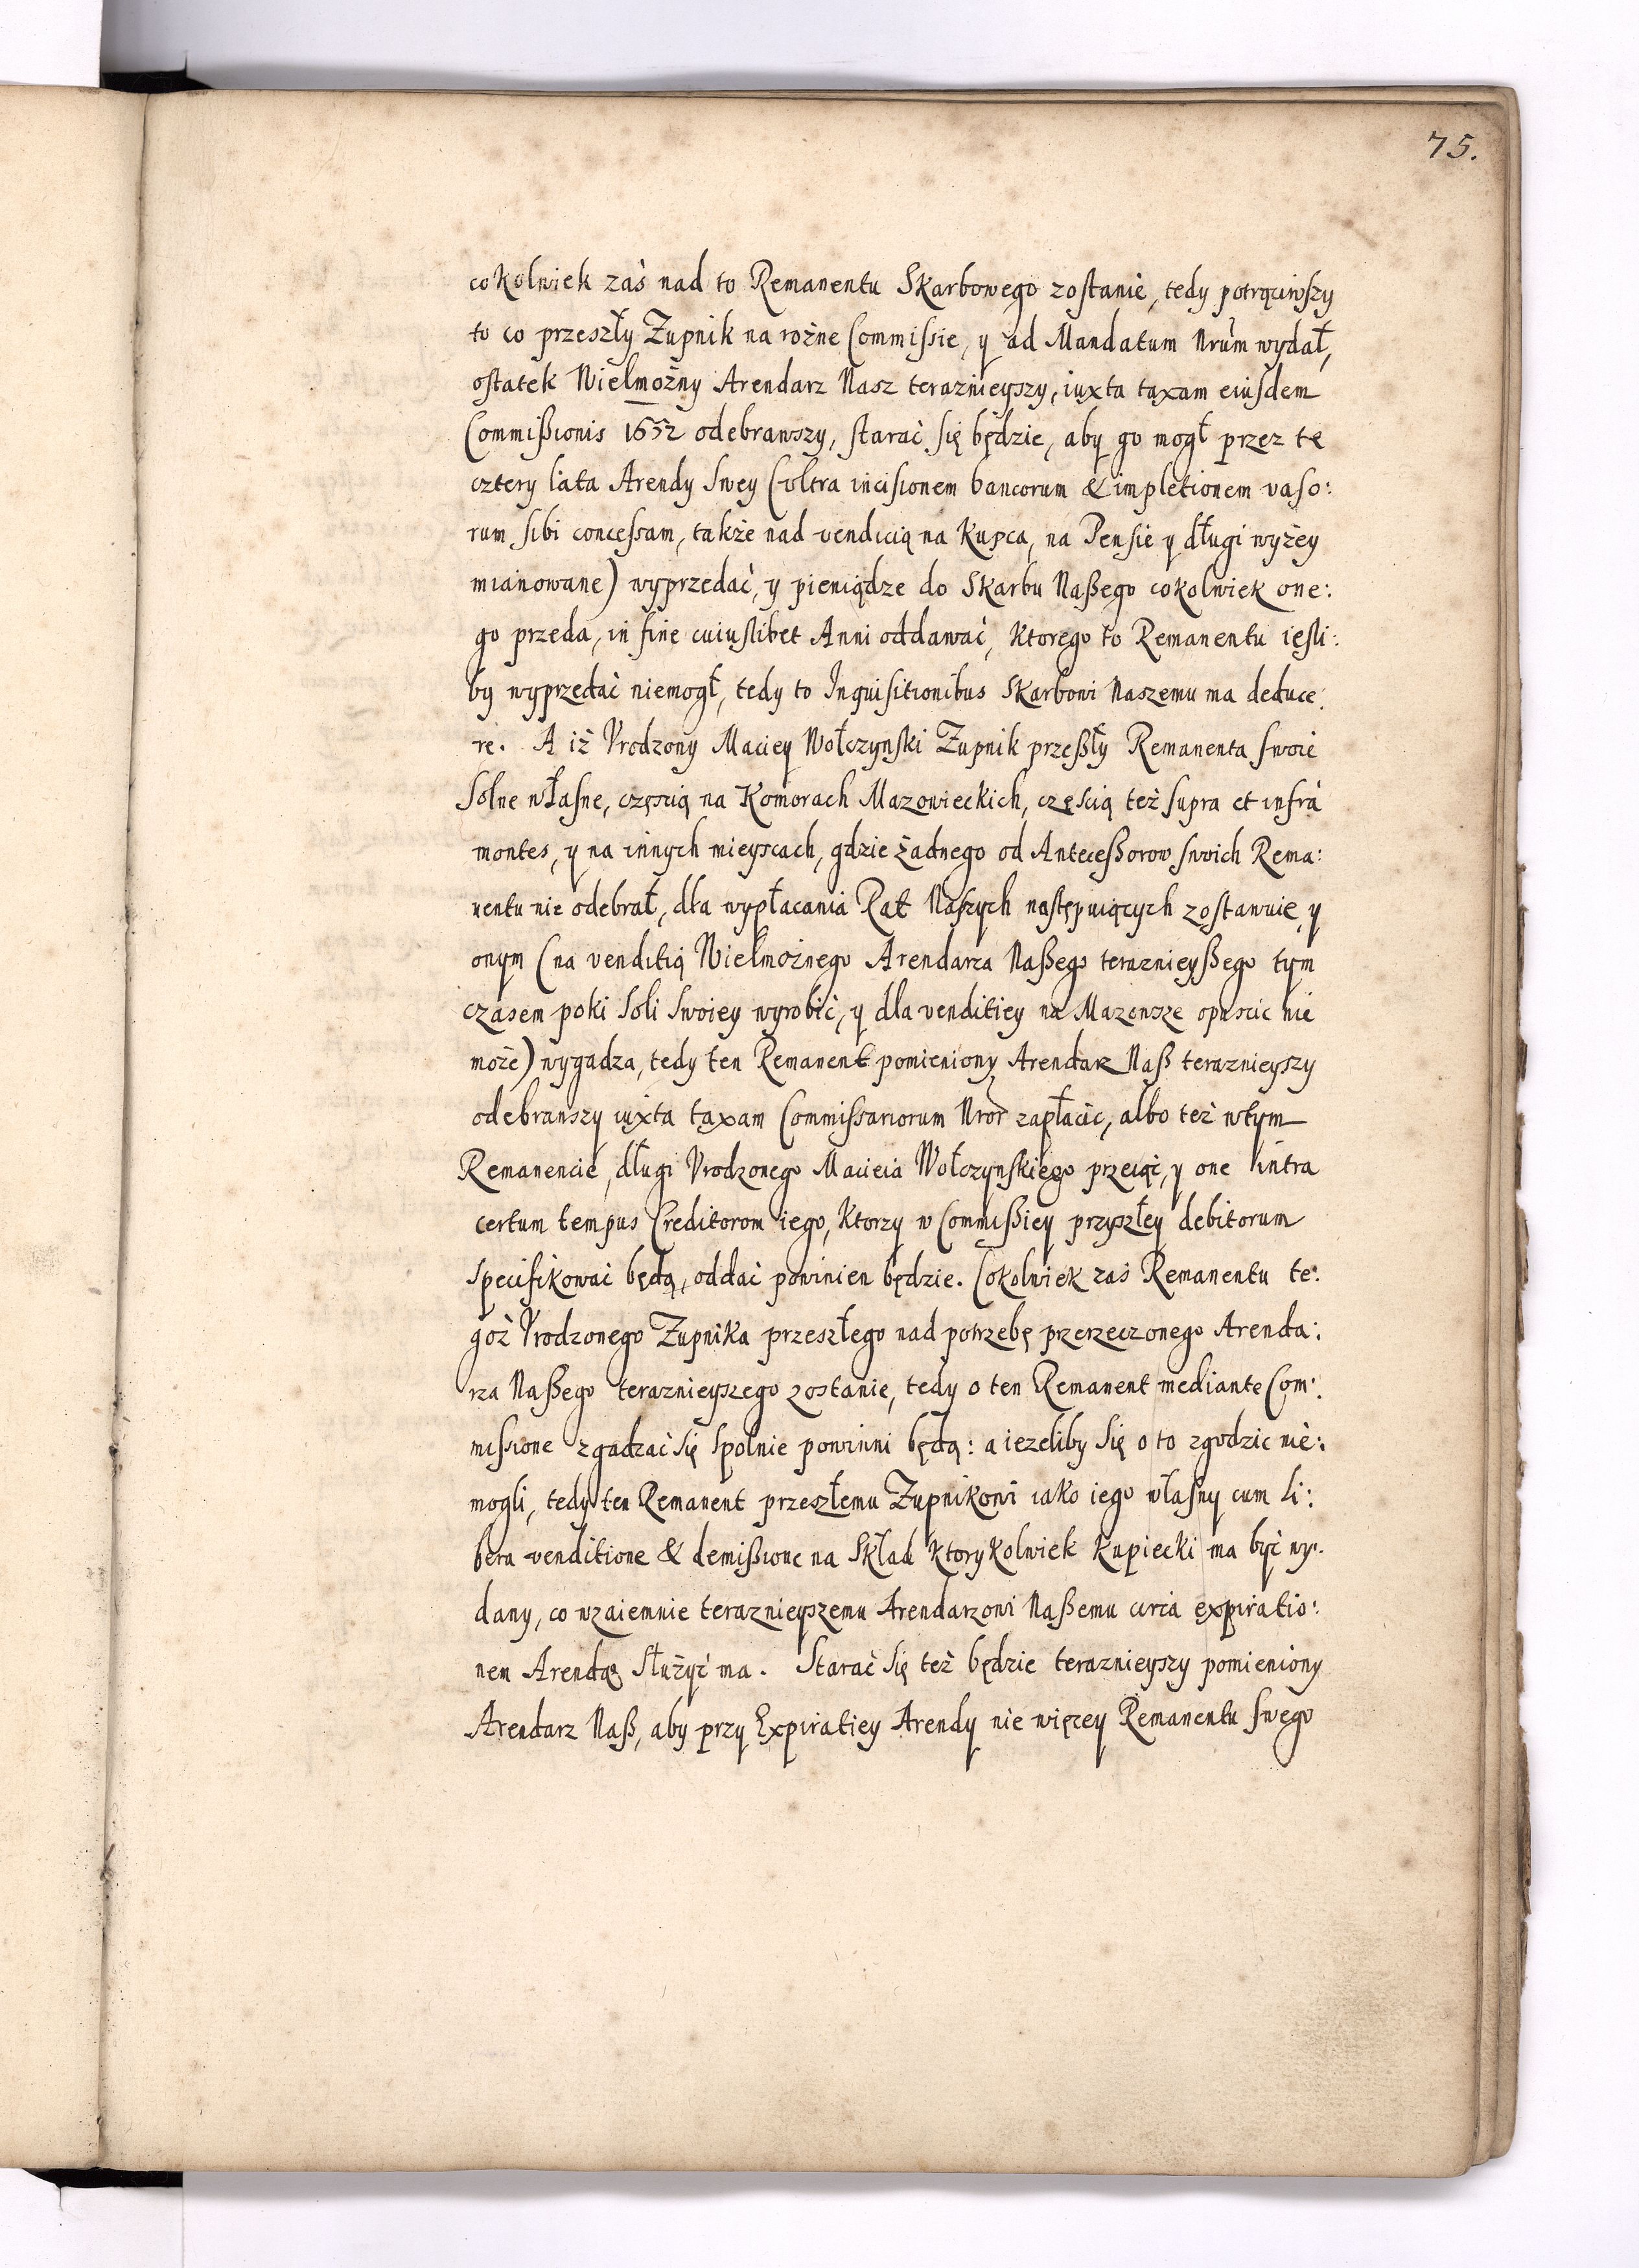 75.
cokolwiek zaś nad to Remanentu Skarbowego zostanie, tedy potrąciwszy
to co przeszły Zupnik na rożne Commissie, y ad Mandatum Nrum wydał,
ostatek Wielmożny Arendarz Nasz teraznieyszy, iuxta taxam eiusdem
Commißionis 1652 odebrawszy, starać się będzie, aby go mogł przez te
cztery lata Arendy swey (vltra incisionem bancorum & impletionem vaso:
rum sibi concessam, także nad vendicią na Kupca, na Pensie y długi wyżey
mianowane) wyprzedać, y pieniądze do Skarbu Naßego cokolwiek one:
go przeda, in fine cuiuslibet Anni oddawać, Ktorego to Remanentu iesli:
by wyprzedać niemogł, tedy to Inquisitionibus Skarbowi Naszemu ma deduce:
re. A iż Vrodzony Maciey Wołczynski Zupnik przeßły Remanenta swoie
Solne własne, częscią na Komorach Mazowieckich, częścią też supra et infra
montes, y na innych mieyscach, gdzie żadnego od Anteceßorow swich Rema:
nentu nie odebrał, dla wypłacania Rat Naszych następuiących zostawuie, y
onym (na venditią Wielmożnego Arendarza Naßego teraznieyßego tym
czasem poki Soli swoiey wyrobić, y dla venditiey na Mazowsze opuscic nie
może) wygadza, tedy ten Remanent pomieniony Arendarz Naß teraznieyszy
odebrawszy iuxta taxam Commissariorum Nror zapłacic, albo też wtym
Remanencie, długi Vrodzonego Macieia Wołczynskiego przeiąć, y one intra
certum tempus Creditorom iego, Ktorzy w Commißiey przyszłey debitorum
specifikować będą, oddać powinien będzie. Cokolwiek zaś Remanentu te:
goż Vrodzonego Zupnika przeszłego nad potrzebę przerzeczonego Arenda:
rza Naßego teraznieyszego zostanie, tedy o ten Remanent mediante Com:
missione zgadzać się spolnie powinni będą: a iezeliby się o to zgodzic nie:
mogli, tedy ten Remanent przeszłemu Zupnikowi iako iego własny cum li:
bera venditione & demißione na Skład Ktorykolwiek Kupiecki ma być wy:
dany, co wzaiemnie teraznieyszemu Arendarzowi Naßemu circa expiratio:
nem Arendæ służyć ma. Starać się też będzie teraznieyszy pomieniony
Arendarz Naß, aby przy Expiratiey Arendy nie więcey Remanentu swego